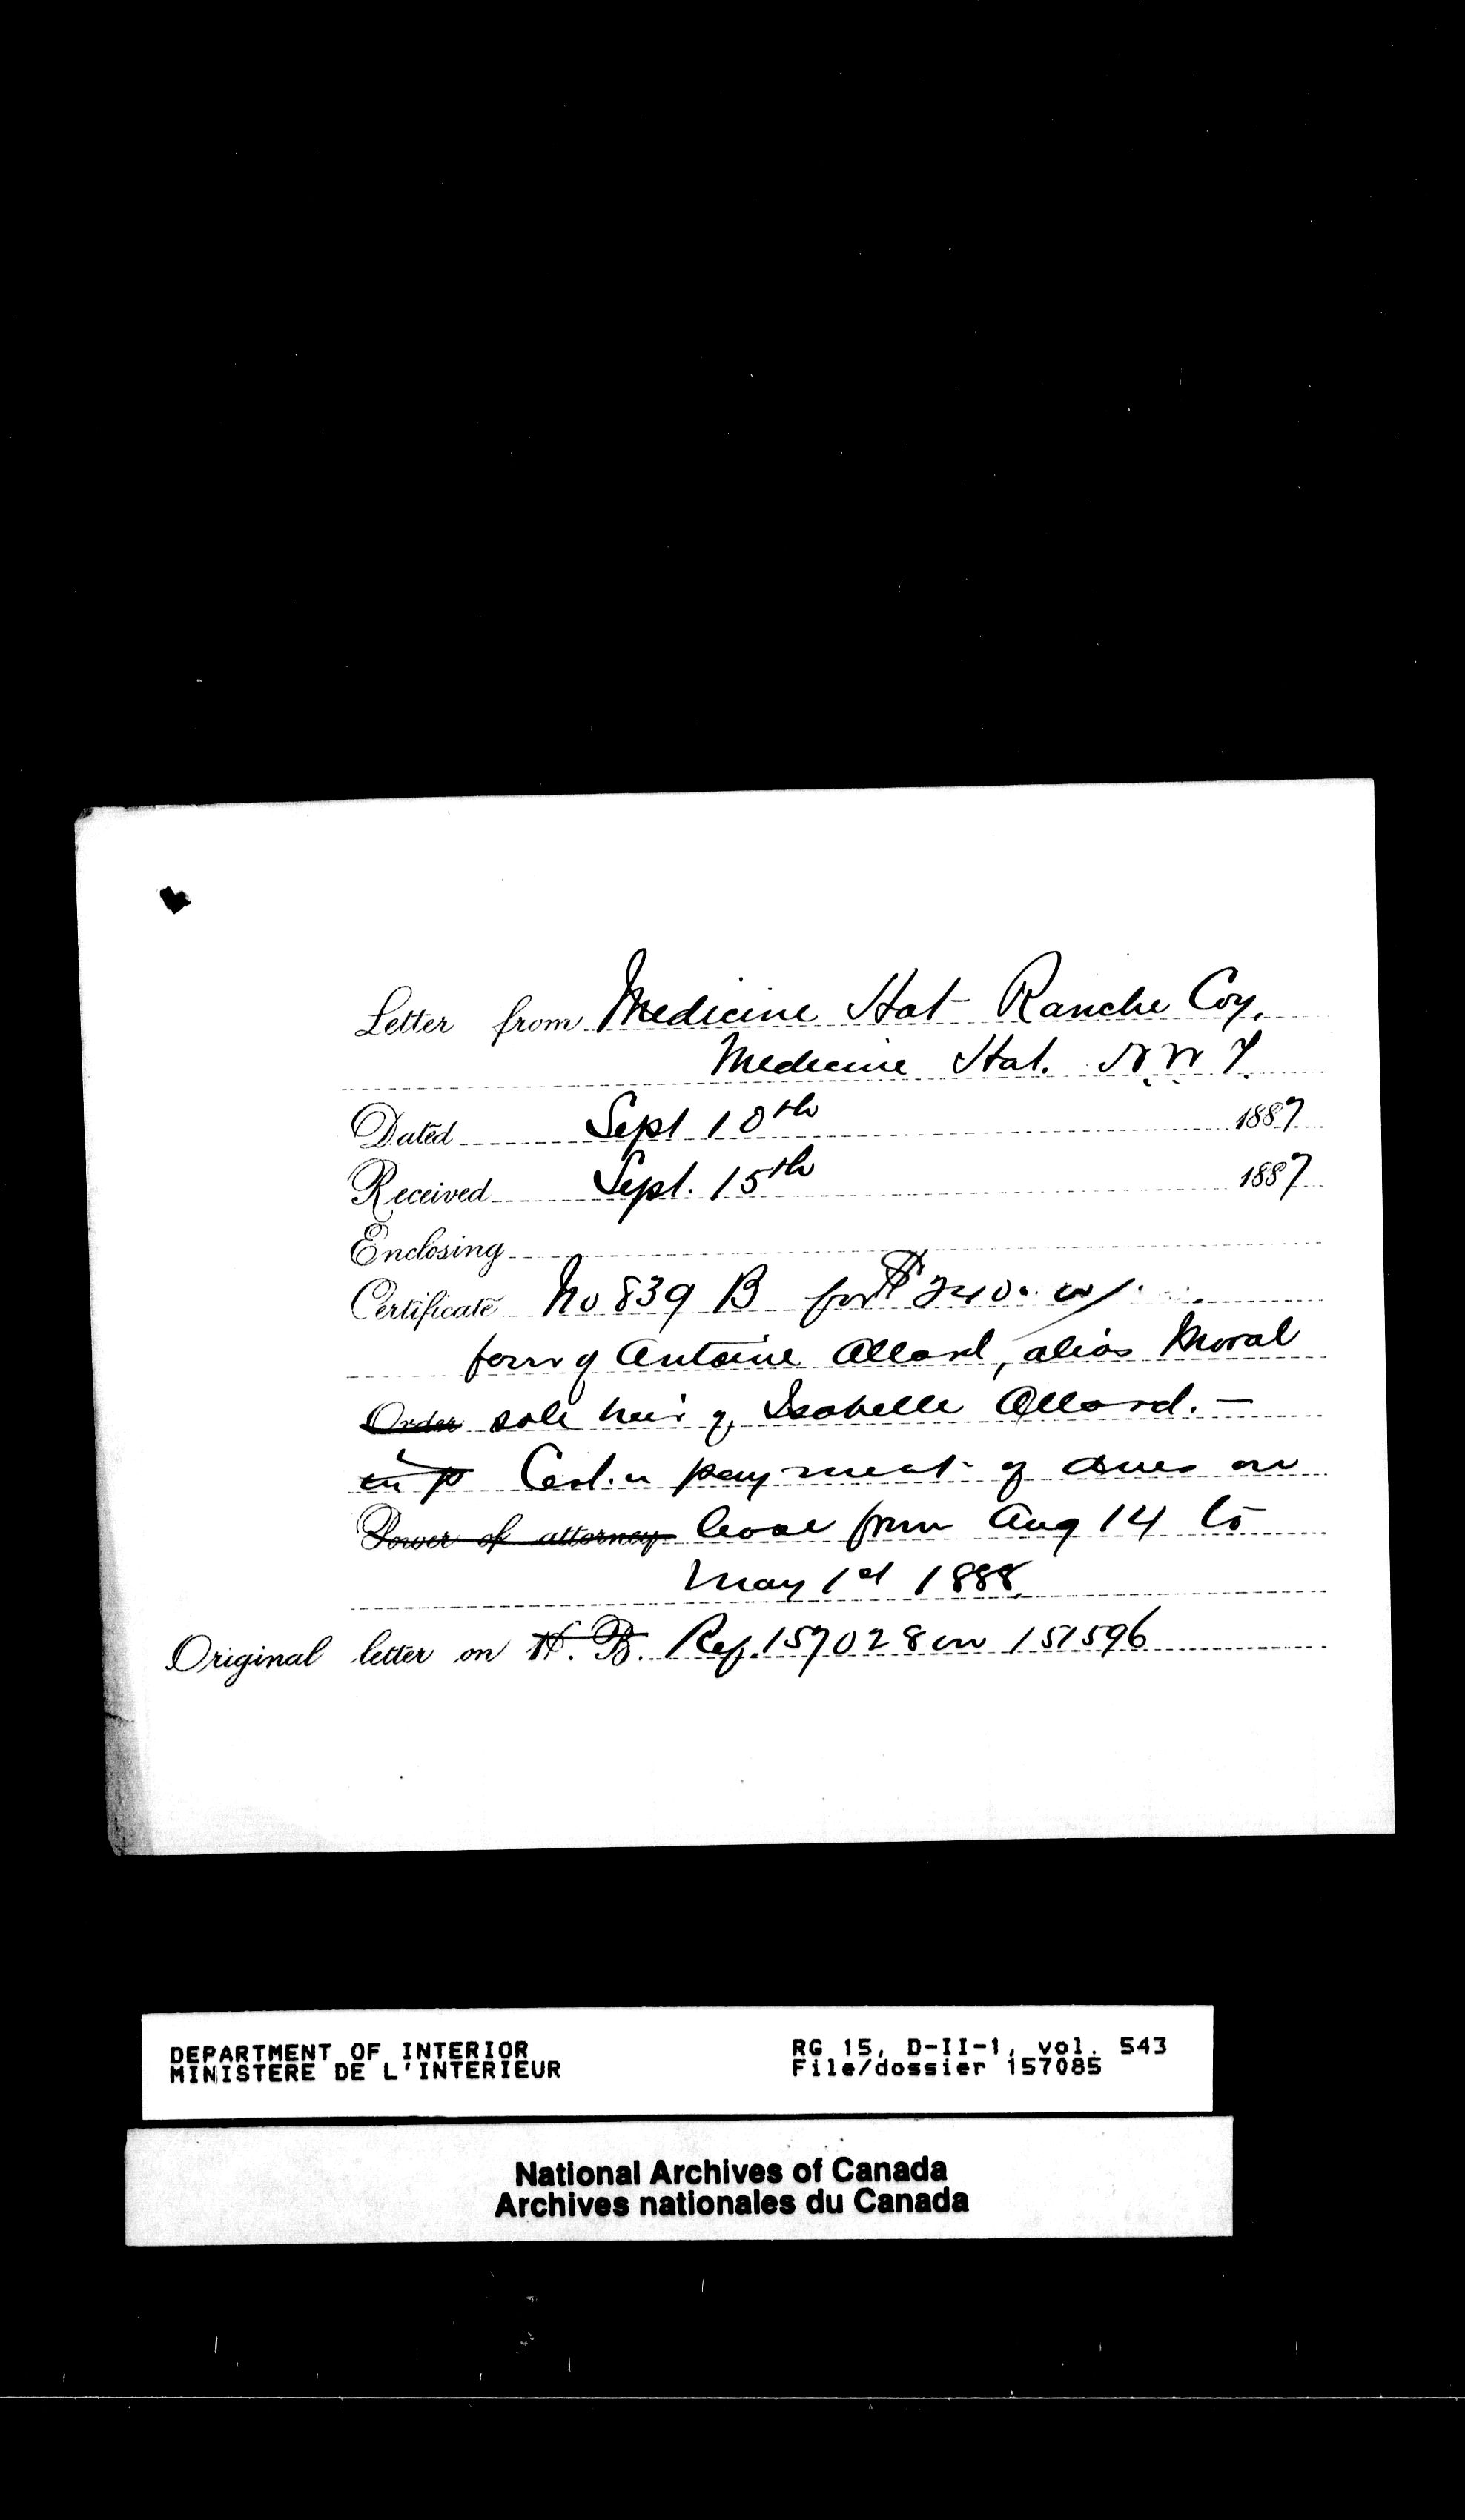 Letter from Medicine Hat Ranche Coy.
Medicine Hat. N.W.T.
Dated Sept 10th 1887
Received Sept. 15th 1887
Enclosing
Certificate No 839 B for $240.00/
favr of Antoine Allard, alias Moral
Order sole heir of Isabelle Allard. —
in payment of dues on
Power of attorney lease from Aug 14 to
May 1st 1888.
Original letter on H. B. Ref. 157028 on 151596
DEPARTMENT OF INTERIOR RG 15, D-II-1, vol. 543
MINISTERE DE L'INTERIEUR File/dossier 157085
National Archives of Canada
Archives nationales du Canada